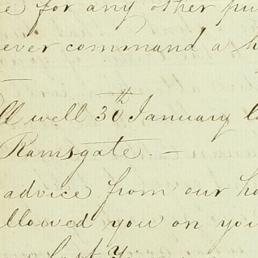 for any other pu
ever command a h
ll well 30th January l
Ramsgate. —
advice from our ho
llowed you on you